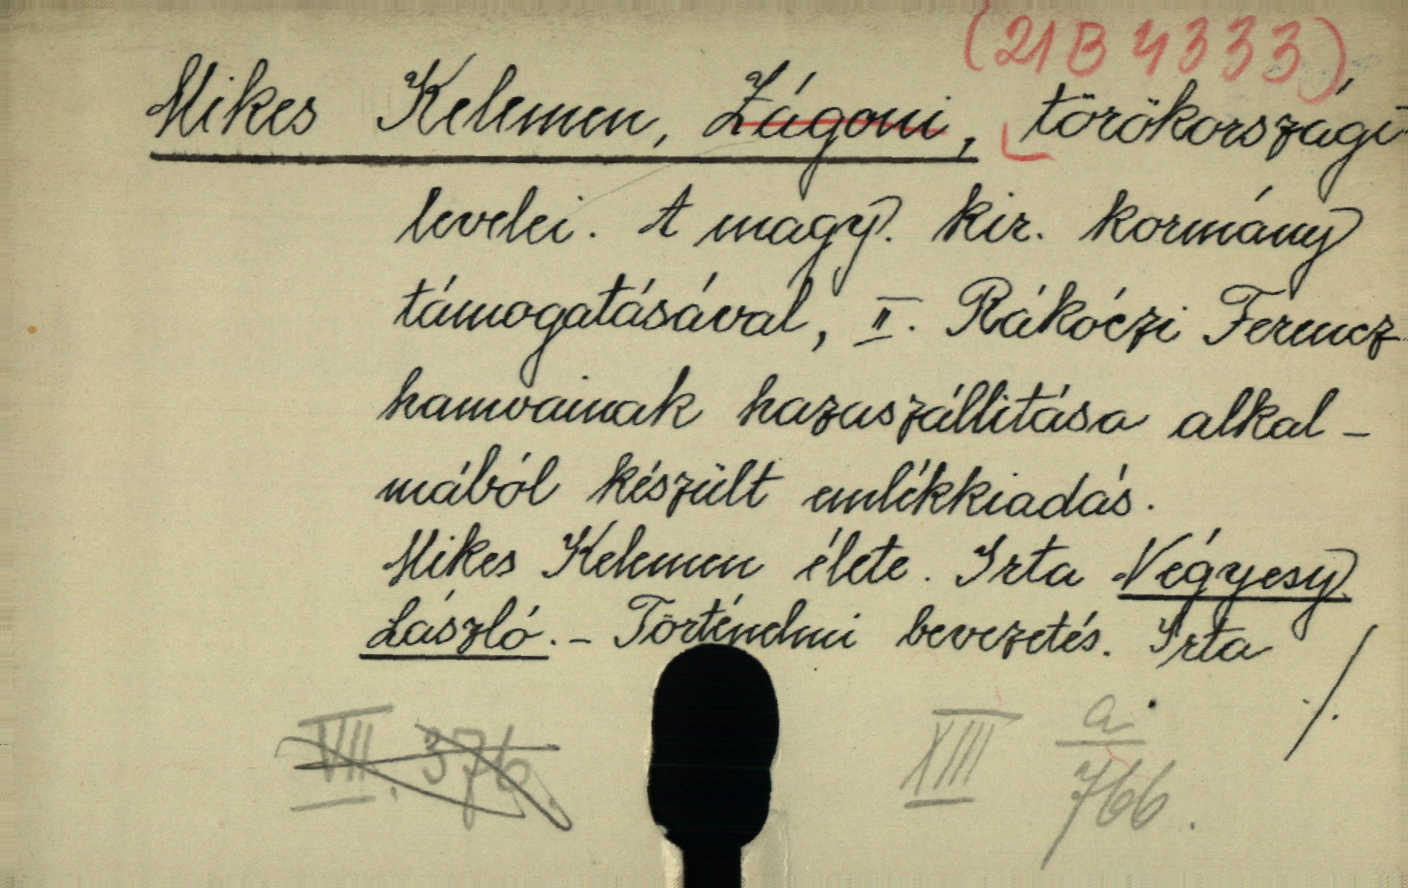 (21 B 4333)
Mikes Kelemen, Zágoni, törökországi
levelei. A magy. kir. kormány
támogatásával, II. Rákóczi Ferencz
hamvainak hazaszállitása alkal-
mából készült emlékkiadás.
Mikes Kelemen élete. Irta Négyesy
László. - Történelmi bevezetés. Irta
./.
VII. 376
XIII a/766.